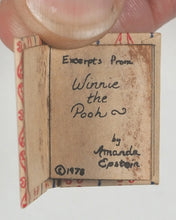 Excerpts From
Winnie
the
Pooh
by
Amanda
Epstein
©1978